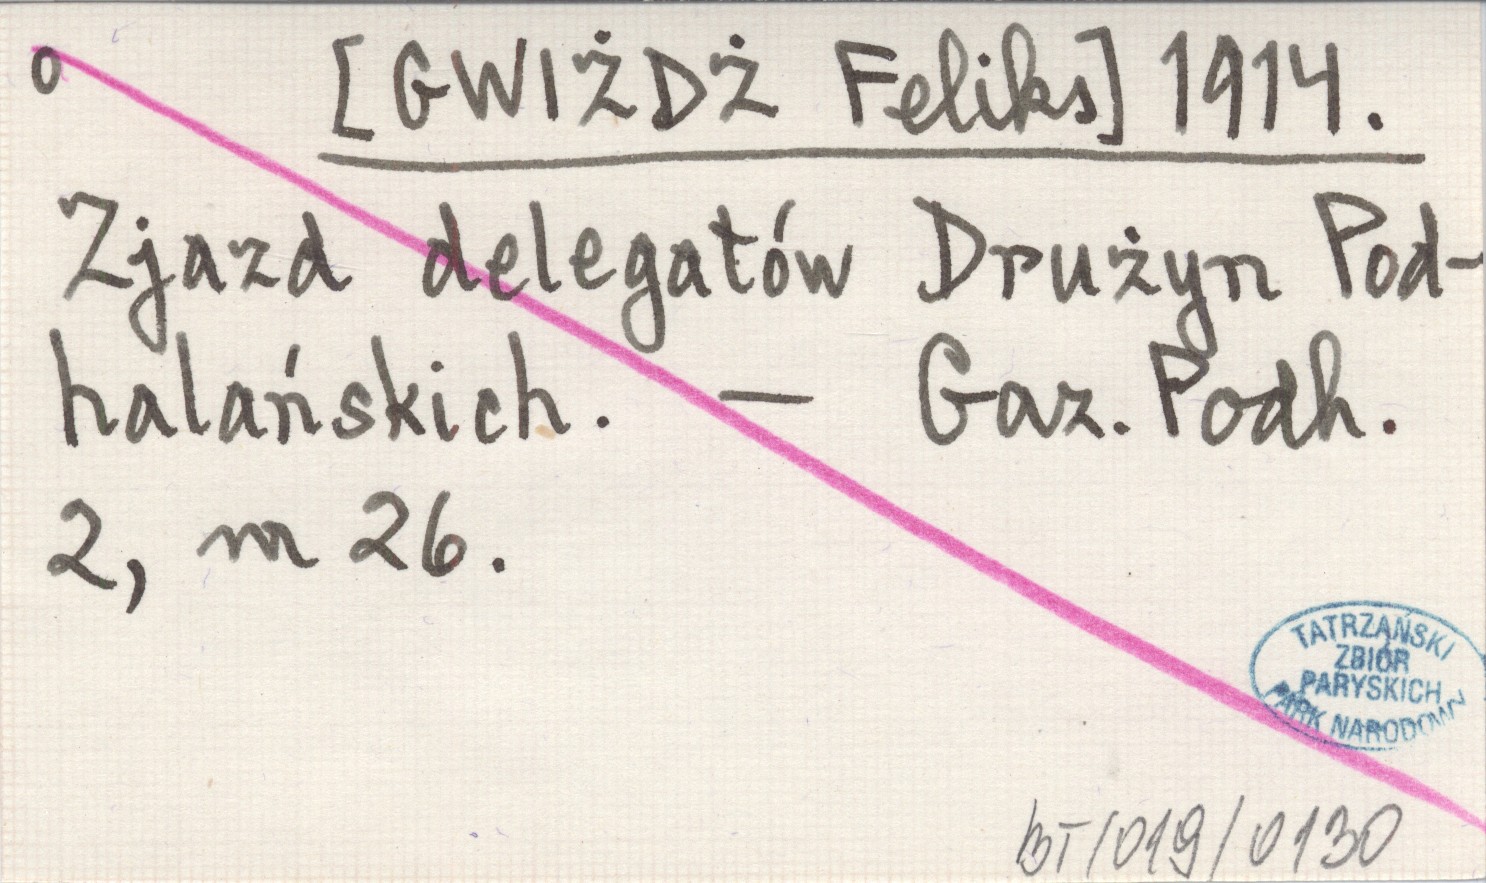 o [GWIŻDŻ Feliks] 1914.
Zjazd delegatów Drużyn Pod-
halańskich. — Gaz. Podh.
2, nr 26.
TATRZAŃSKI
ZBIÓR
PARYSKICH
PARK NARODOWY
BT/019/0130